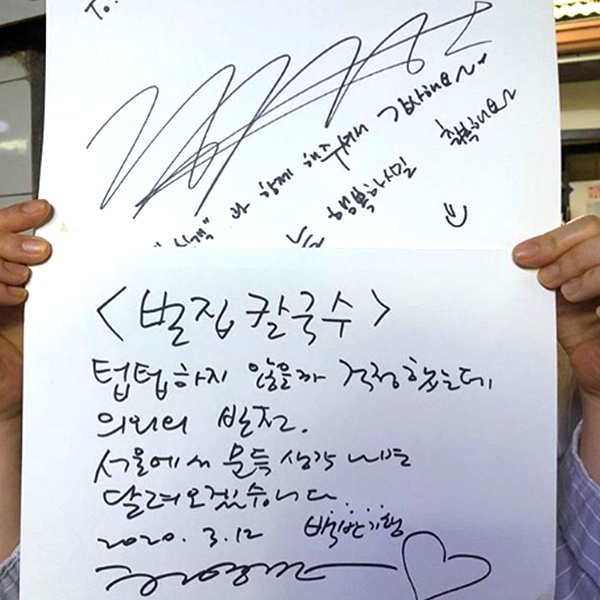 To.
함께 해주셔서 감사해요~
행복하시길 축복해요~
<벌집 칼국수>
텁텁하지 않을까 걱정했는데
의외의 발견.
서울에서 문득 생각나면
달려오겠습니다
2020. 3. 12 백반기행